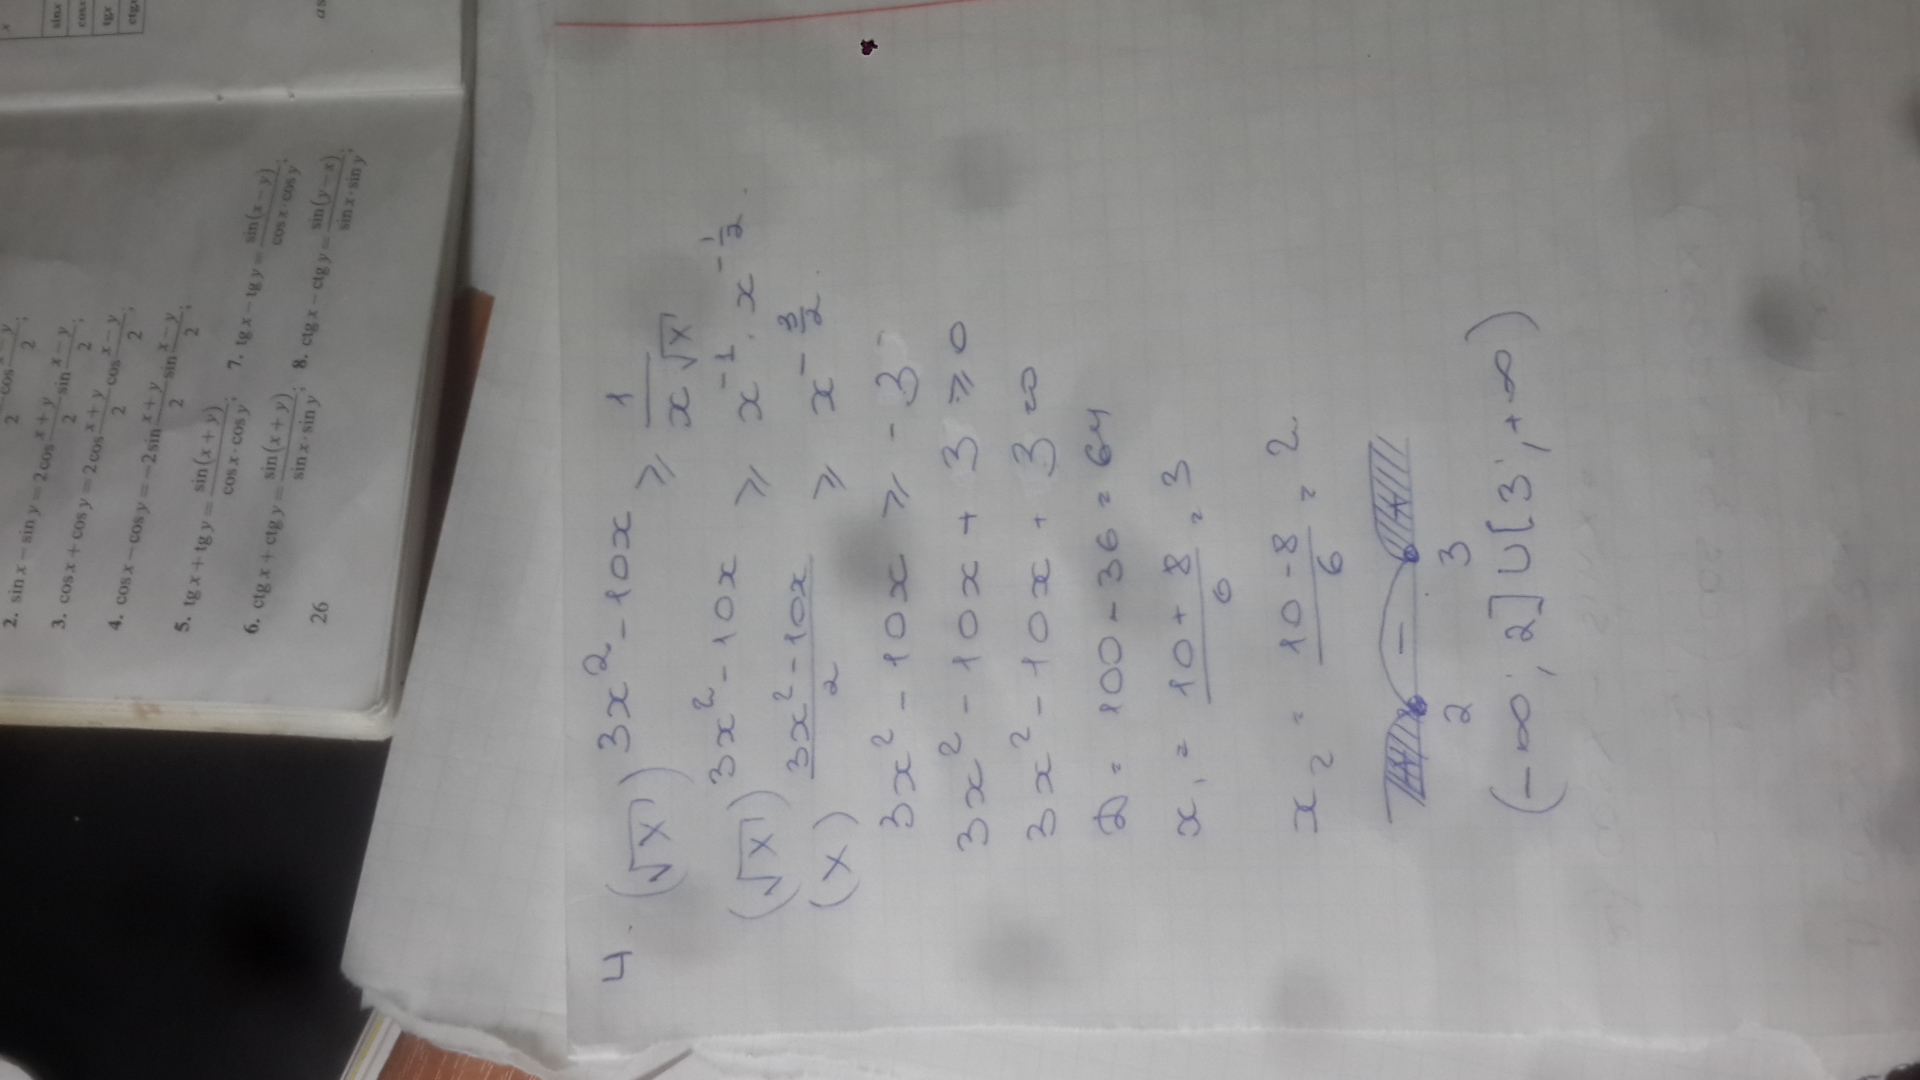 2. sin x − sin y = 2cos (x+y)/2 sin (x−y)/2;
3. cos x + cos y = 2cos (x+y)/2 cos (x−y)/2;
4. cos x − cos y = −2sin (x+y)/2 sin (x−y)/2;
5. tg x + tg y = sin(x+y)/(cos x·cos y); 7. tg x − tg y = sin(x−y)/(cos x·cos y);
6. ctg x + ctg y = sin(x+y)/(sin x·sin y); 8. ctg x − ctg y = sin(y−x)/(sin x·sin y)
26
4. (√x)^(3x²−10x) ⩾ 1/(x√x)
(√x)^(3x²−10x) ⩾ x^(−1)·x^(−1/2).
(x)^((3x²−10x)/2) ⩾ x^(−3/2).
3x² − 10x ⩾ −3
3x² − 10x + 3 ⩾ 0
3x² − 10x + 3 =
D = 100 − 36 = 64
x₁ = (10+8)/6 = 3
x₂ = (10−8)/6 = 2
−
2 3
(−∞; 2]∪[3; +∞)